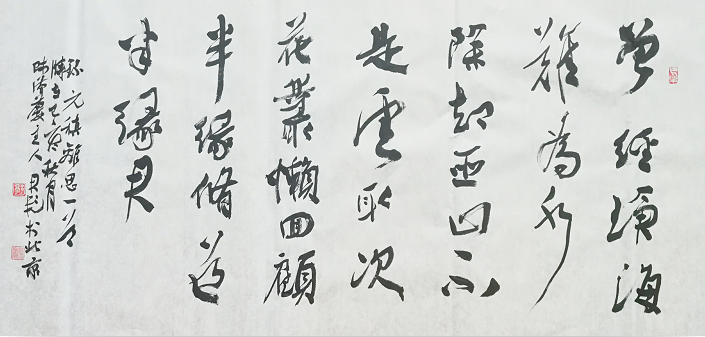 曾經滄海
難為水
除却巫山不
是雲取次
花叢懶回顧
半緣脩道
半緣君
錄元稹離思一首
秋月
主人於北京